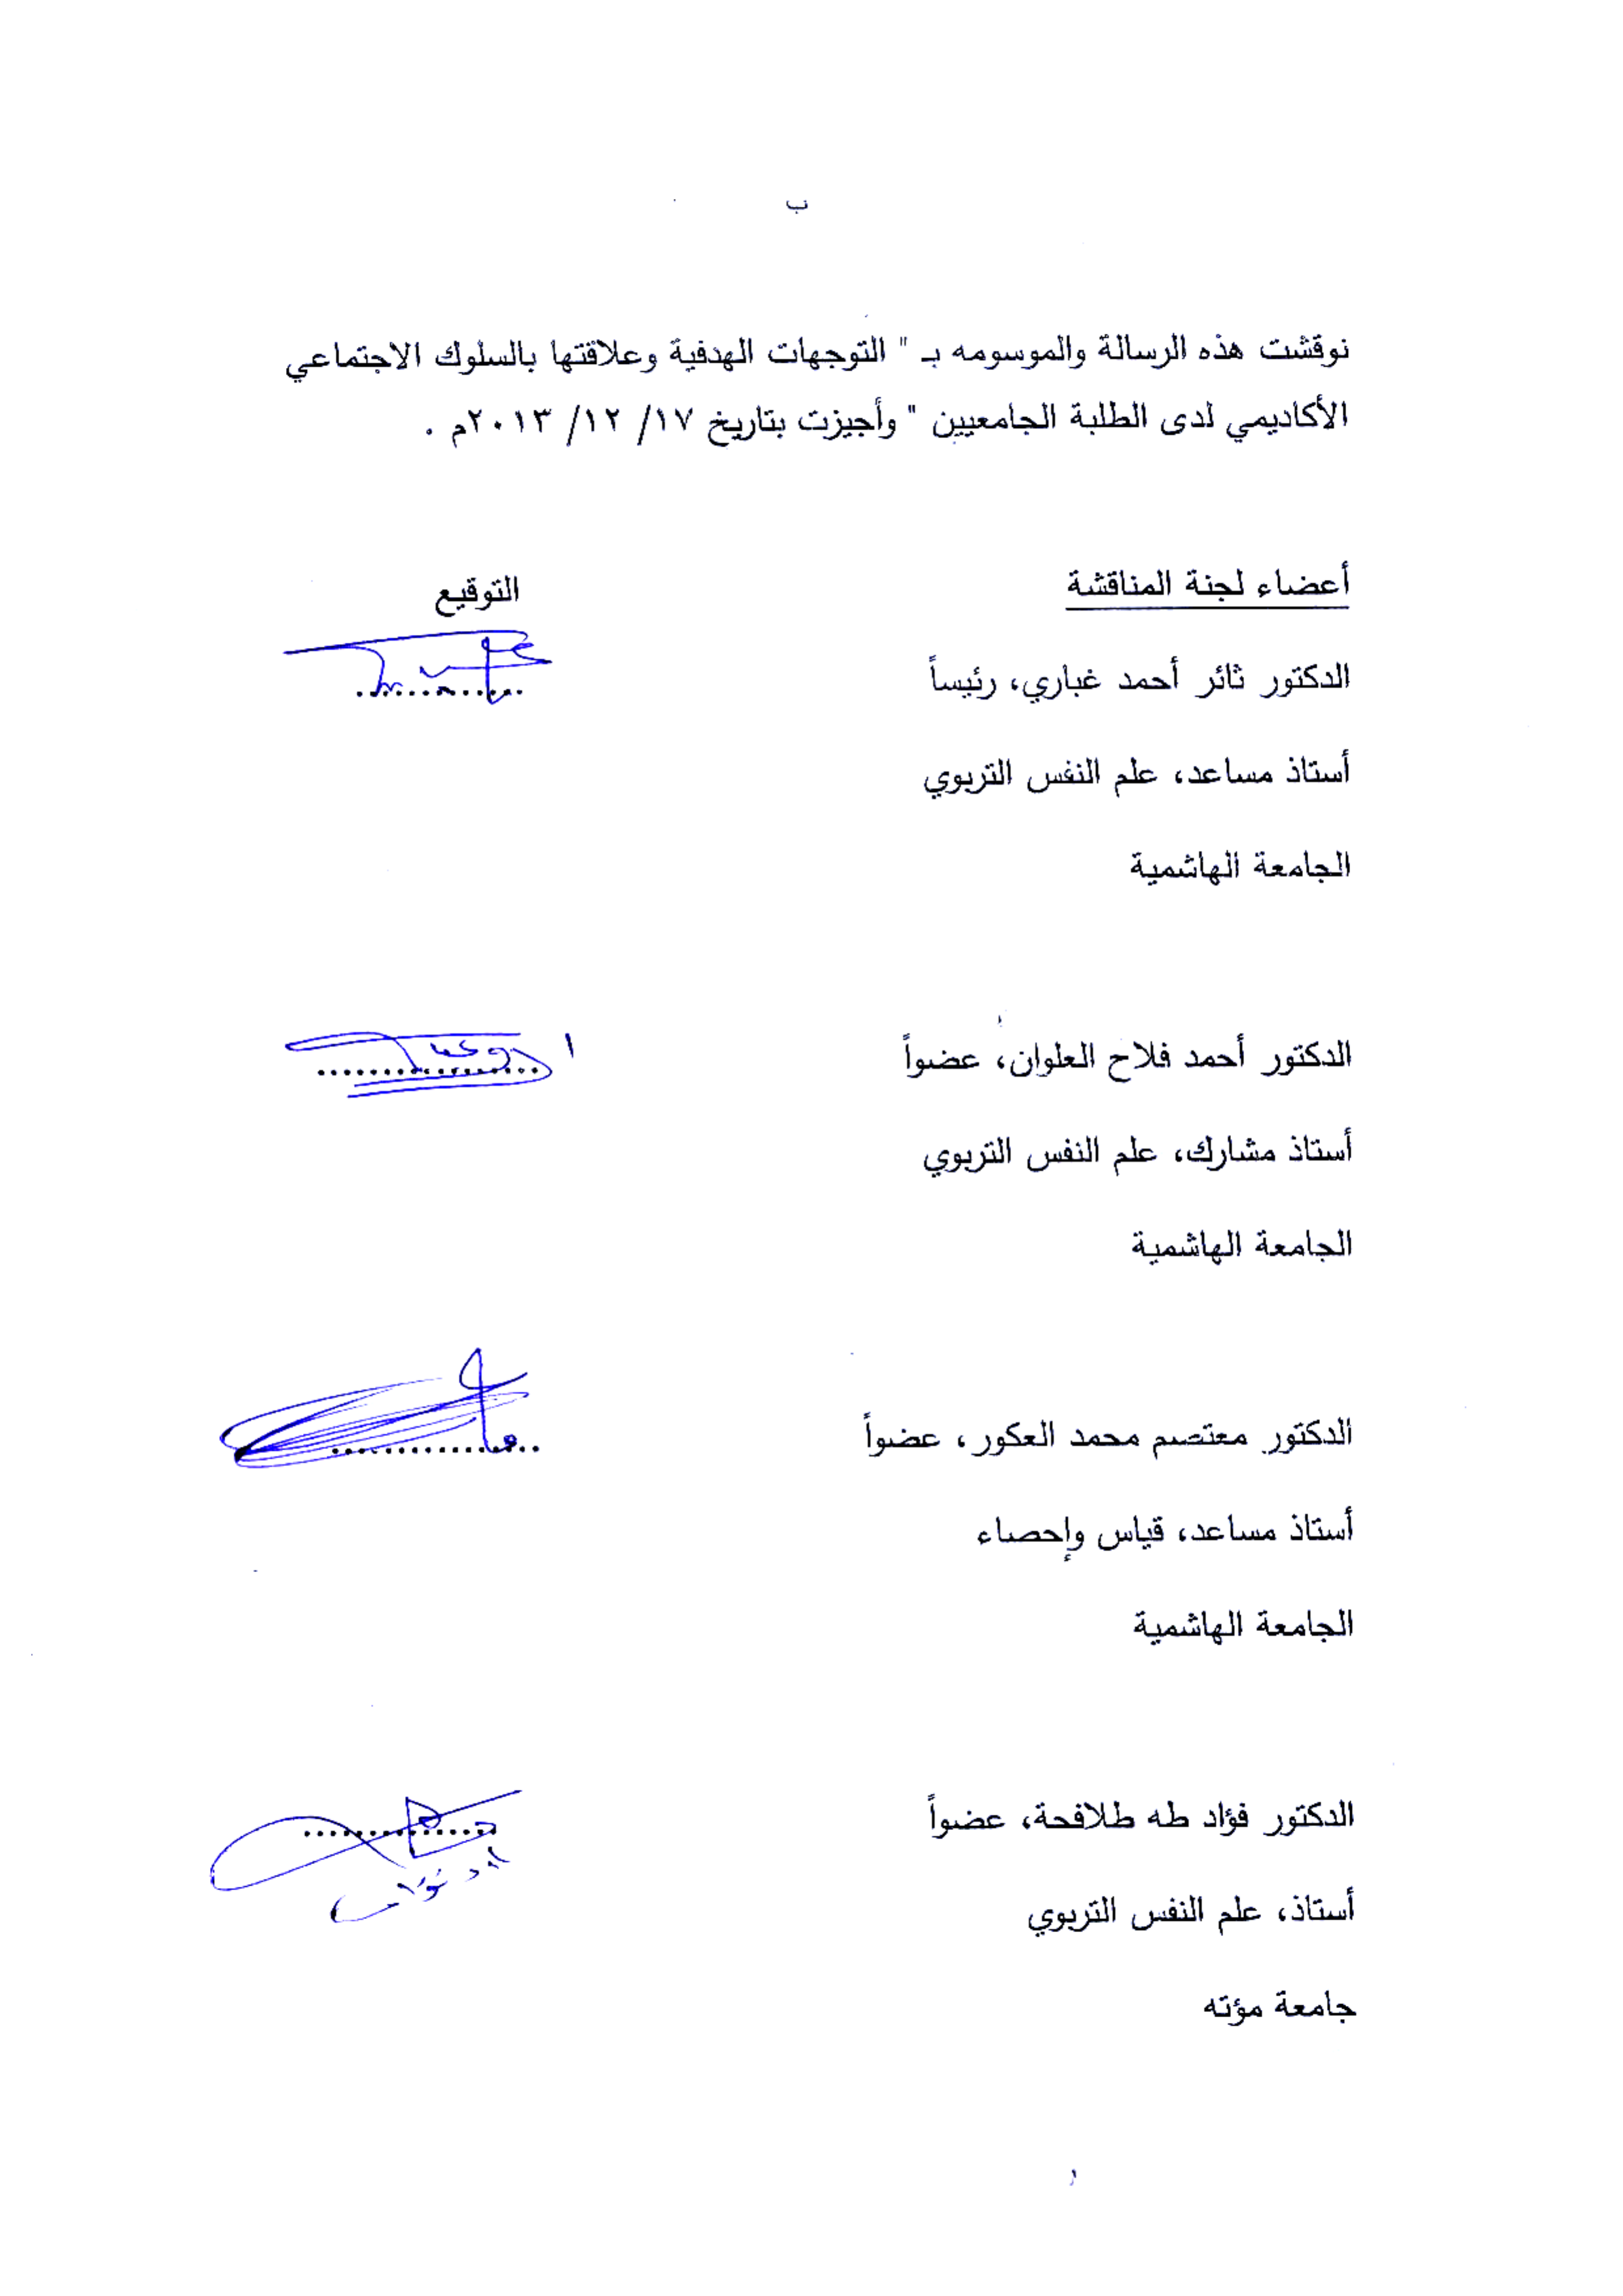 ب
نوقشت هذه الرسالة والموسومه بـ " التوجهات الهدفية وعلاقتها بالسلوك الاجتماعي
الأكاديمي لدى الطلبة الجامعيين " وأجيزت بتاريخ ١٧/ ١٢/ ٢٠١٣م .
أعضاء لجنة المناقشة
التوقيع
الدكتور ثائر أحمد غباري، رئيساً
أستاذ مساعد، علم النفس التربوي
الجامعة الهاشمية
الدكتور أحمد فلاح العلوان، عضواً
أستاذ مشارك، علم النفس التربوي
الجامعة الهاشمية
الدكتور معتصم محمد العكور، عضواً
أستاذ مساعد، قياس وإحصاء
الجامعة الهاشمية
الدكتور فؤاد طه طلافحة، عضواً
أستاذ، علم النفس التربوي
جامعة مؤته